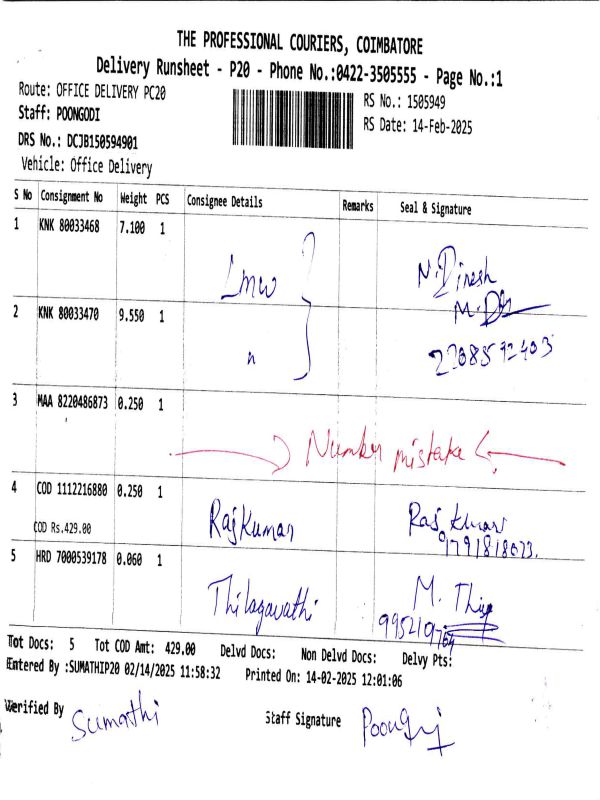 THE PROFESSIONAL COURIERS, COIMBATORE
Delivery Runsheet - P20 - Phone No.:0422-3505555 - Page No.:1
Route: OFFICE DELIVERY PC20
RS No.: 1505949
Staff: POONGODI
RS Date: 14-Feb-2025
DRS No.: DCJB150594901
Vehicle: Office Delivery
S No Consignment No Weight PCS Consignee Details Remarks Seal & Signature
1 KNK 80033468 7.100 1
Lmw N. Dinesh
2 KNK 80033470 9.550 1
3 MAA 8220486873 0.250 1
Number mistake
4 COD 1112216880 0.250 1
COD Rs.429.00
RajKumar Raj Kumar
9791818023.
5 HRD 7000539178 0.060 1
Thilagavathi M.
Tot Docs: 5 Tot COD Amt: 429.00 Delvd Docs: Non Delvd Docs: Delvy Pts:
Entered By :SUMATHIP20 02/14/2025 11:58:32 Printed On: 14-02-2025 12:01:06
Verified By Sumathi Staff Signature